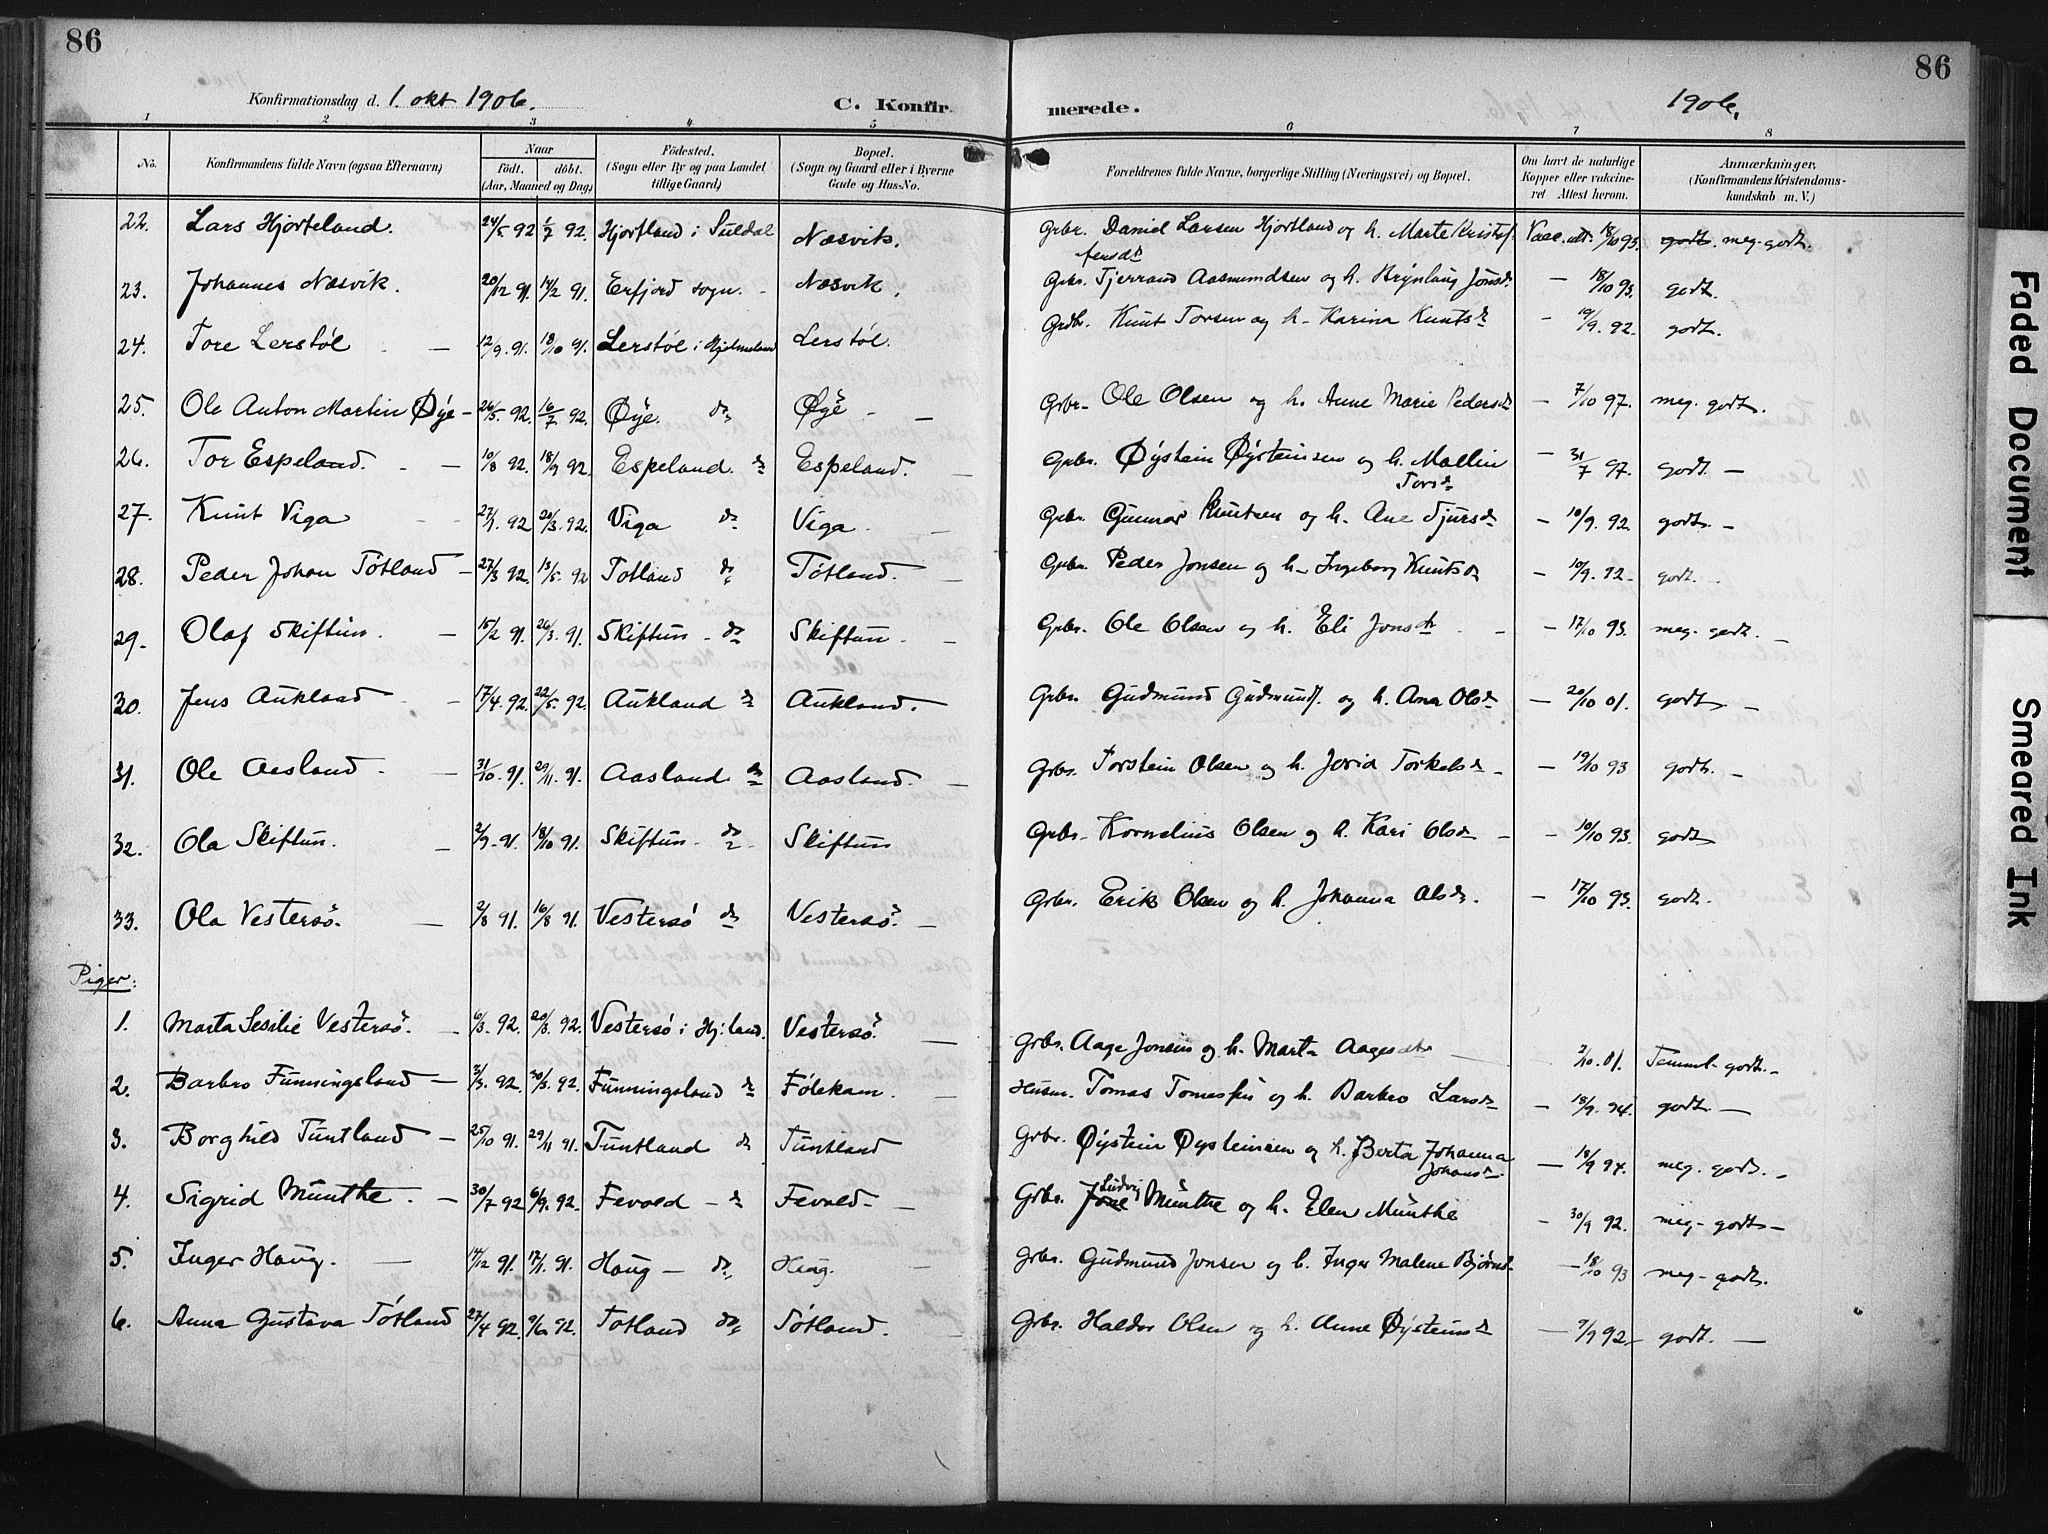 86
86
Konfirmationsdag d. 1. okt 1906.
C. Konfirmerede.
1906.
1 2 3 4 5 6 7 8
No. Konfirmandens fulde Navn (ogsaa Efternavn) Naar født. døbt. (Aar, Maaned og Dag) Fødested. (Sogn eller By og paa Landet tillige Gaard) Bopæl. (Sogn og Gaard eller i Byerne Gade og Hus-No. Forældrenes fulde Navne, borgerlige Stilling (Næringsvei) og Bopæl. Om havt de naturlige Kopper eller vakcineret Attest herom. Anmærkninger, (Konfirmandens Kristendomskundskab m. V.)
22. Lars Hjorteland. 24/5 92 1/7 92. Hjortland i Suldal Næsvik. Grbr. Daniel Larsen Hjortland og h. Marte Kristof- Vacc. att. 18/10 93. godt. meg. godt.
fersdr
23. Johannes Næsvik. 20/12 91. 14/2 91. Erfjord sogn. - Næsvik. Grbr. Tjerrand Aasmundsen og h. Jonsdr - 18/10 93. godt.
24. Tore Lerstøl - 12/9. 91. 18/10 91. Lerstøl i Hjelmeland Lerstøl. Grbr. Knut Torsen og h. Karina Knutsdr - 19/9. 92. godt.
25. Ole Anton Martin Øye - 26/5. 92. 16/7 92. Øye. do Øye - Grbr. Ole Olsen og h. Anne Marie Pedersdr - 7/10 97. meg. godt.
26. Tor Espeland. - 10/8 92. 18/9 92. Espeland. do Espeland. - Grbr. Øystein Øysteinsen og h. Mallin - 31/7 97. godt. -
Torsdr
27. Knut Viga - 27/1. 92 20/3. 92. Viga do Viga - Grbr. Gunnar Knutsen og h. Ane Sjursdr - 10/9. 92. godt. -
28. Peder Johan Tøtland - 27/3 92. 13/5. 92 Totland do Tøtland. - Grbr. Peder Jonsen og h. Ingeborg Knutsdr - 10/9. 92. godt. -
29. Olaf Skiftun. - 15/2 91. 26/3. 91. Skiftun - do Skiftun. - Grbr. Ole Olsen og h. Eli Jonsdtr - - 17/10 93. meg. godt. -
30. Jens Aukland - 17/4. 92. 22/5. 92 Aukland do Aukland. - Grbr. Gudmund Gudmunds. og h. Ana Olsdr - 20/10 01. godt. -
31. Ole Aasland. - 31/10. 91. 29/11 91. Aasland do Aasland. - Grbr. Torstein Olsen og h. Joria Torkelsdr - - 19/10 93 godt. -
32. Ola Skiftun. - 2/9. 91. 18/10 91. Skiftun. do Skiftun Grbr. Kornelius Olsen og h. Kari Olsdr - - 10/10 93. godt
33. Ola Vestersø. - 2/8 91. 16/8 91. Vestersø do Vestersø. - Grbr. Erik Olsen og h. Johanna Olsdr. - 17/10 93. godt.
Piger:
1. Marta Sesilie Vestersø. - 6/3. 92. 20/3. 92. Vestersø i Hj:land. Vestersø. - Grbr. Aage Jonsen og h. Marta Aagesdtr - 2/10. 01. Temml. godt. -
2. Barbro Funningsland - 3/3. 92. 30/3. 92. Funningsland do Følekam. - Husm. Tomas Tomassen og h. Barbro Larsdr - 18/9. 94. godt. -
3. Borghild Tuntland - 25/10 91. 29/11 91. Tuntland do Tuntland Grbr. Øystein Øysteinsen og h. Berta Johanna - 18/9 94. meg. godt. -
Johansdr.
4. Sigrid Münthe. - 30/7 92 6/9. 92. Fevold - do Fevold - - Grbr. Jone Ludvig Münthe og h. Elen Münthe - 30/9 92. meg. godt -
5. Inger Haug. - 14/12 91. 17/1. 91. Haug - do Haug. - Grbr. Gudmund Jonsen og h. Inger Malene Bjørnd. - 18/10 93 meg. godt.
6. Anna Gustava Tøtland 27/4 92. 9/6 92. Totland do Tøtland. - Grbr. Haldor Olsen og h. Anne Øysteinsdr - 9/9 92 - godt. -
Faded Document
Smeared Ink